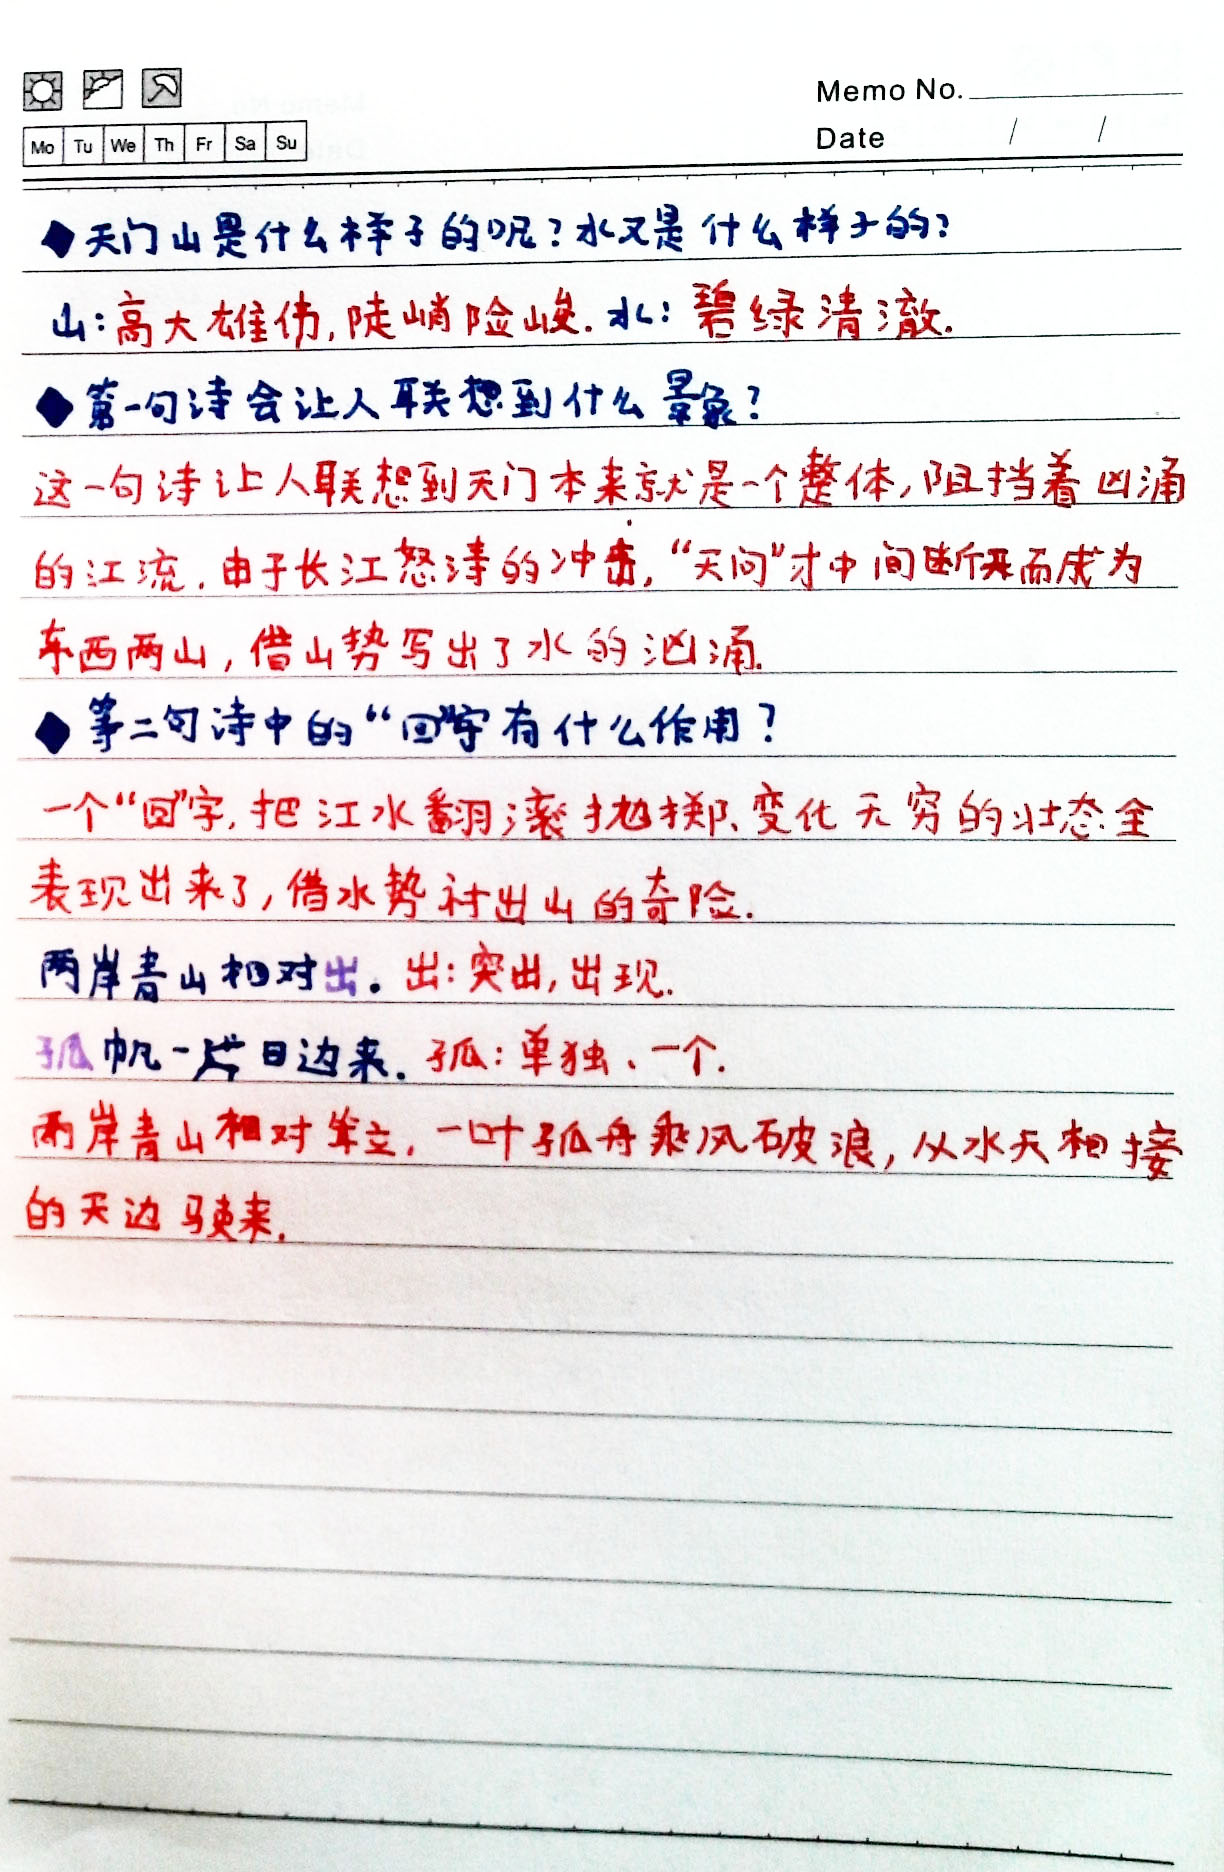 Memo No.
Mo Tu We Th Fr Sa Su
Date / /
◆天门山是什么样子的呢?水又是什么样子的?
山:高大雄伟,陡峭险峻.水:碧绿清澈.
◆第一句诗会让人联想到什么景象?
这一句诗让人联想到天门本来就是一个整体,阻挡着凶涌
的江流.由于长江怒涛的冲击,“天问”才中间断开而成为
东西两山,借山势写出了水的汹涌.
◆第二句诗中的“回”字有什么作用?
一个“回”字,把江水翻滚抛掷、变化无穷的壮态全
表现出来了,借水势衬出山的奇险.
两岸青山相对出。出:突出,出现.
孤帆一片日边来.孤:单独、一个.
两岸青山相对耸立,一叶孤舟乘风破浪,从水天相接
的天边驶来.